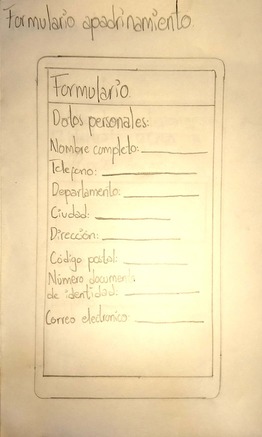 Formulario apadrinamiento
Formulario
Datos personales:
Nombre completo:
Telefono:
Departamento:
Ciudad:
Dirección:
Código postal:
Número documento
de identidad:
Correo electronico: